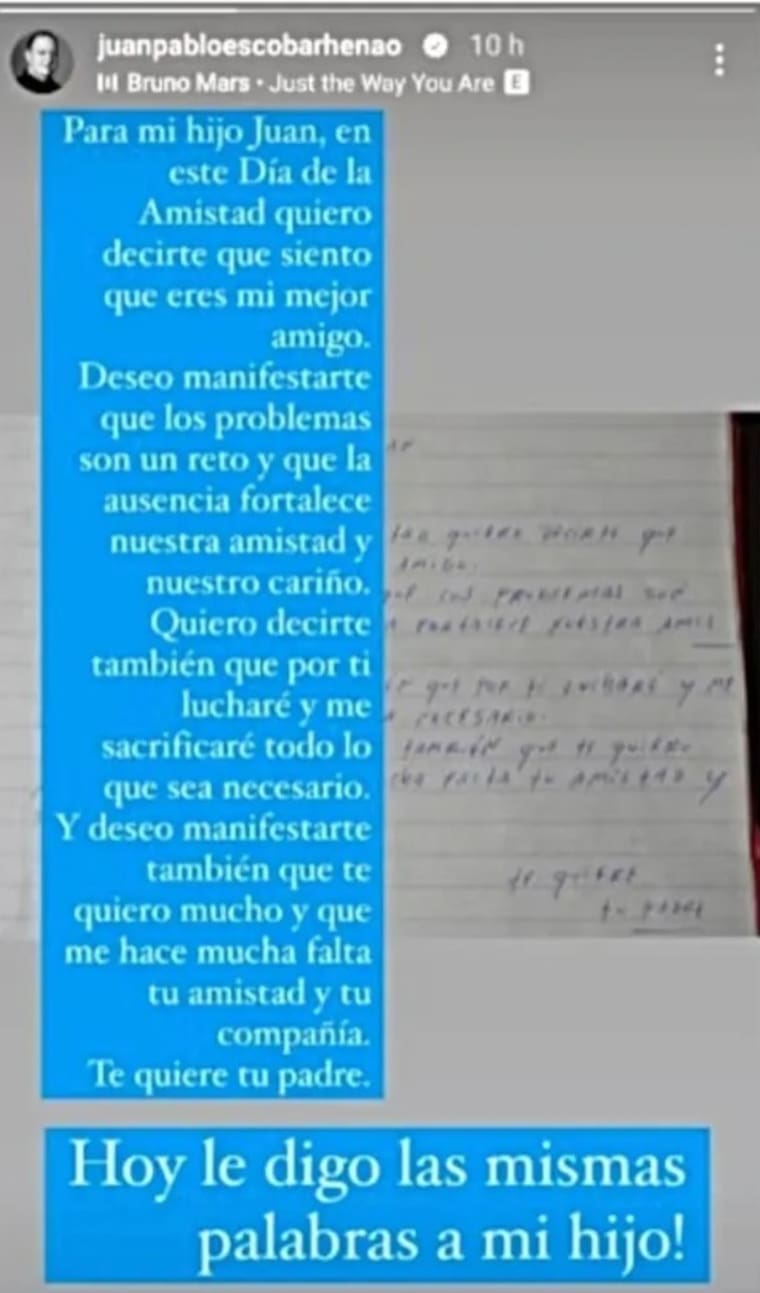 juanpabloescobarhenao 10 h
Bruno Mars • Just the Way You Are E
Para mi hijo Juan, en
este Día de la
Amistad quiero
decirte que siento
que eres mi mejor
amigo.
Deseo manifestarte
que los problemas
son un reto y que la
ausencia fortalece
nuestra amistad y
nuestro cariño.
Quiero decirte
también que por ti
lucharé y me
sacrificaré todo lo
que sea necesario.
Y deseo manifestarte
también que te
quiero mucho y que
me hace mucha falta
tu amistad y tu
compañía.
Te quiere tu padre.
quiero decirte que
amigo.
que los problemas son
fortalece nuestra amis
que por ti lucharé y me
necesario.
también que te quiero
falta tu amistad y
te quiere
tu padre
Hoy le digo las mismas
palabras a mi hijo!